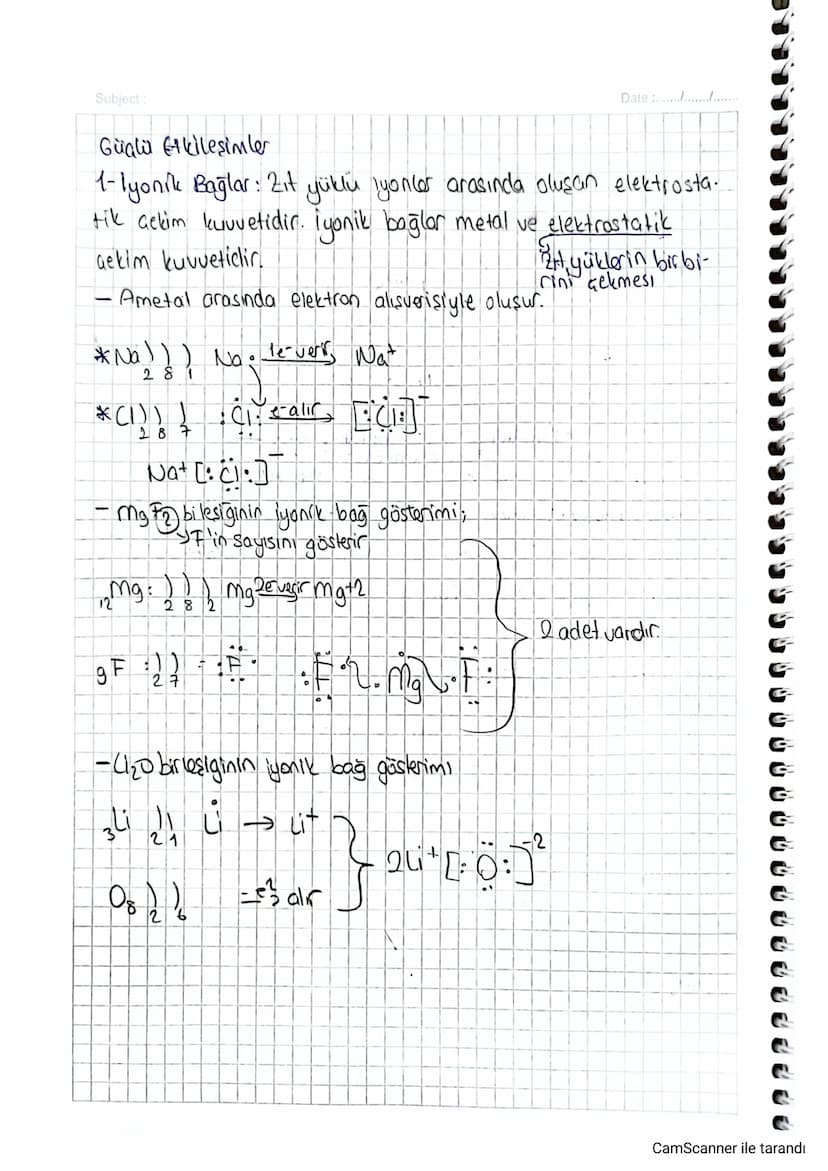 Subject :
Date :....../......./.......
Güçlü Etkileşimler
1-İyonik Bağlar: Zıt yüklü iyonlar arasında oluşan elektrosta-
tik çekim kuvvetidir. İyonik bağlar metal ve elektrostatik
çekim kuvvetidir.
Zıt yüklerin birbi-
rini çekmesi
— Ametal arasında elektron alışverişiyle oluşur.
*Na ) ) ) Na· 1e- verir Na+
2 8 1
*Cl ) ) ) :Cl: e- alır [:Cl:]-
2 8 7
Na+ [:Cl:]-
- MgF2 bileşiğinin iyonik bağ gösterimi;
F'in sayısını gösterir
12Mg: ) ) ) Mg 2e verir Mg+2
2 8 2
2 adet vardır.
9F :) ) = :F· :F· ·Mg ·F:
2 7
-Li2O birleşiğinin iyonik bağ gösterimi
3Li ) ) Li → Li+
2 1
2Li+ [:O:]-2
O8 ) ) alır
2 6
CamScanner ile tarandı